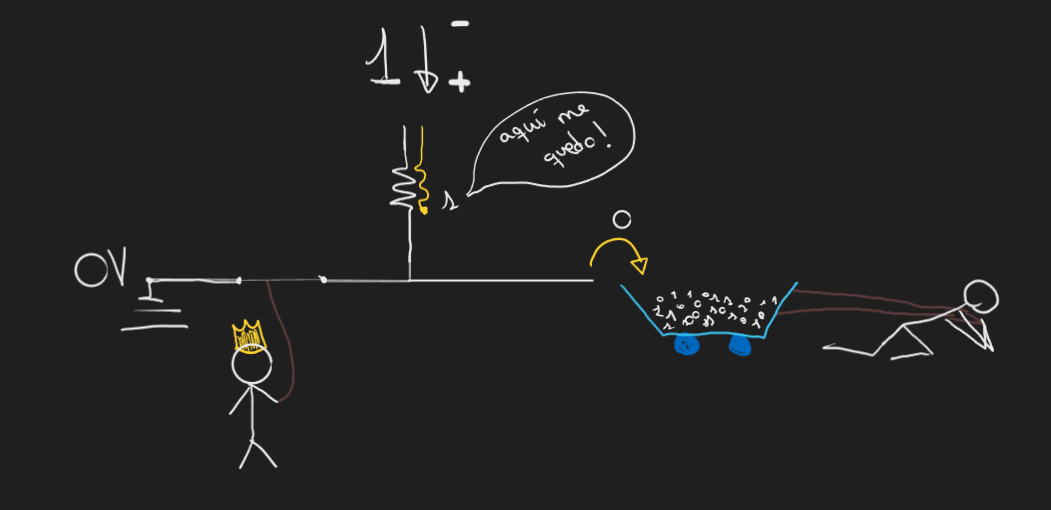 1
- 
+
aquí me
quedo!
1
0
0V